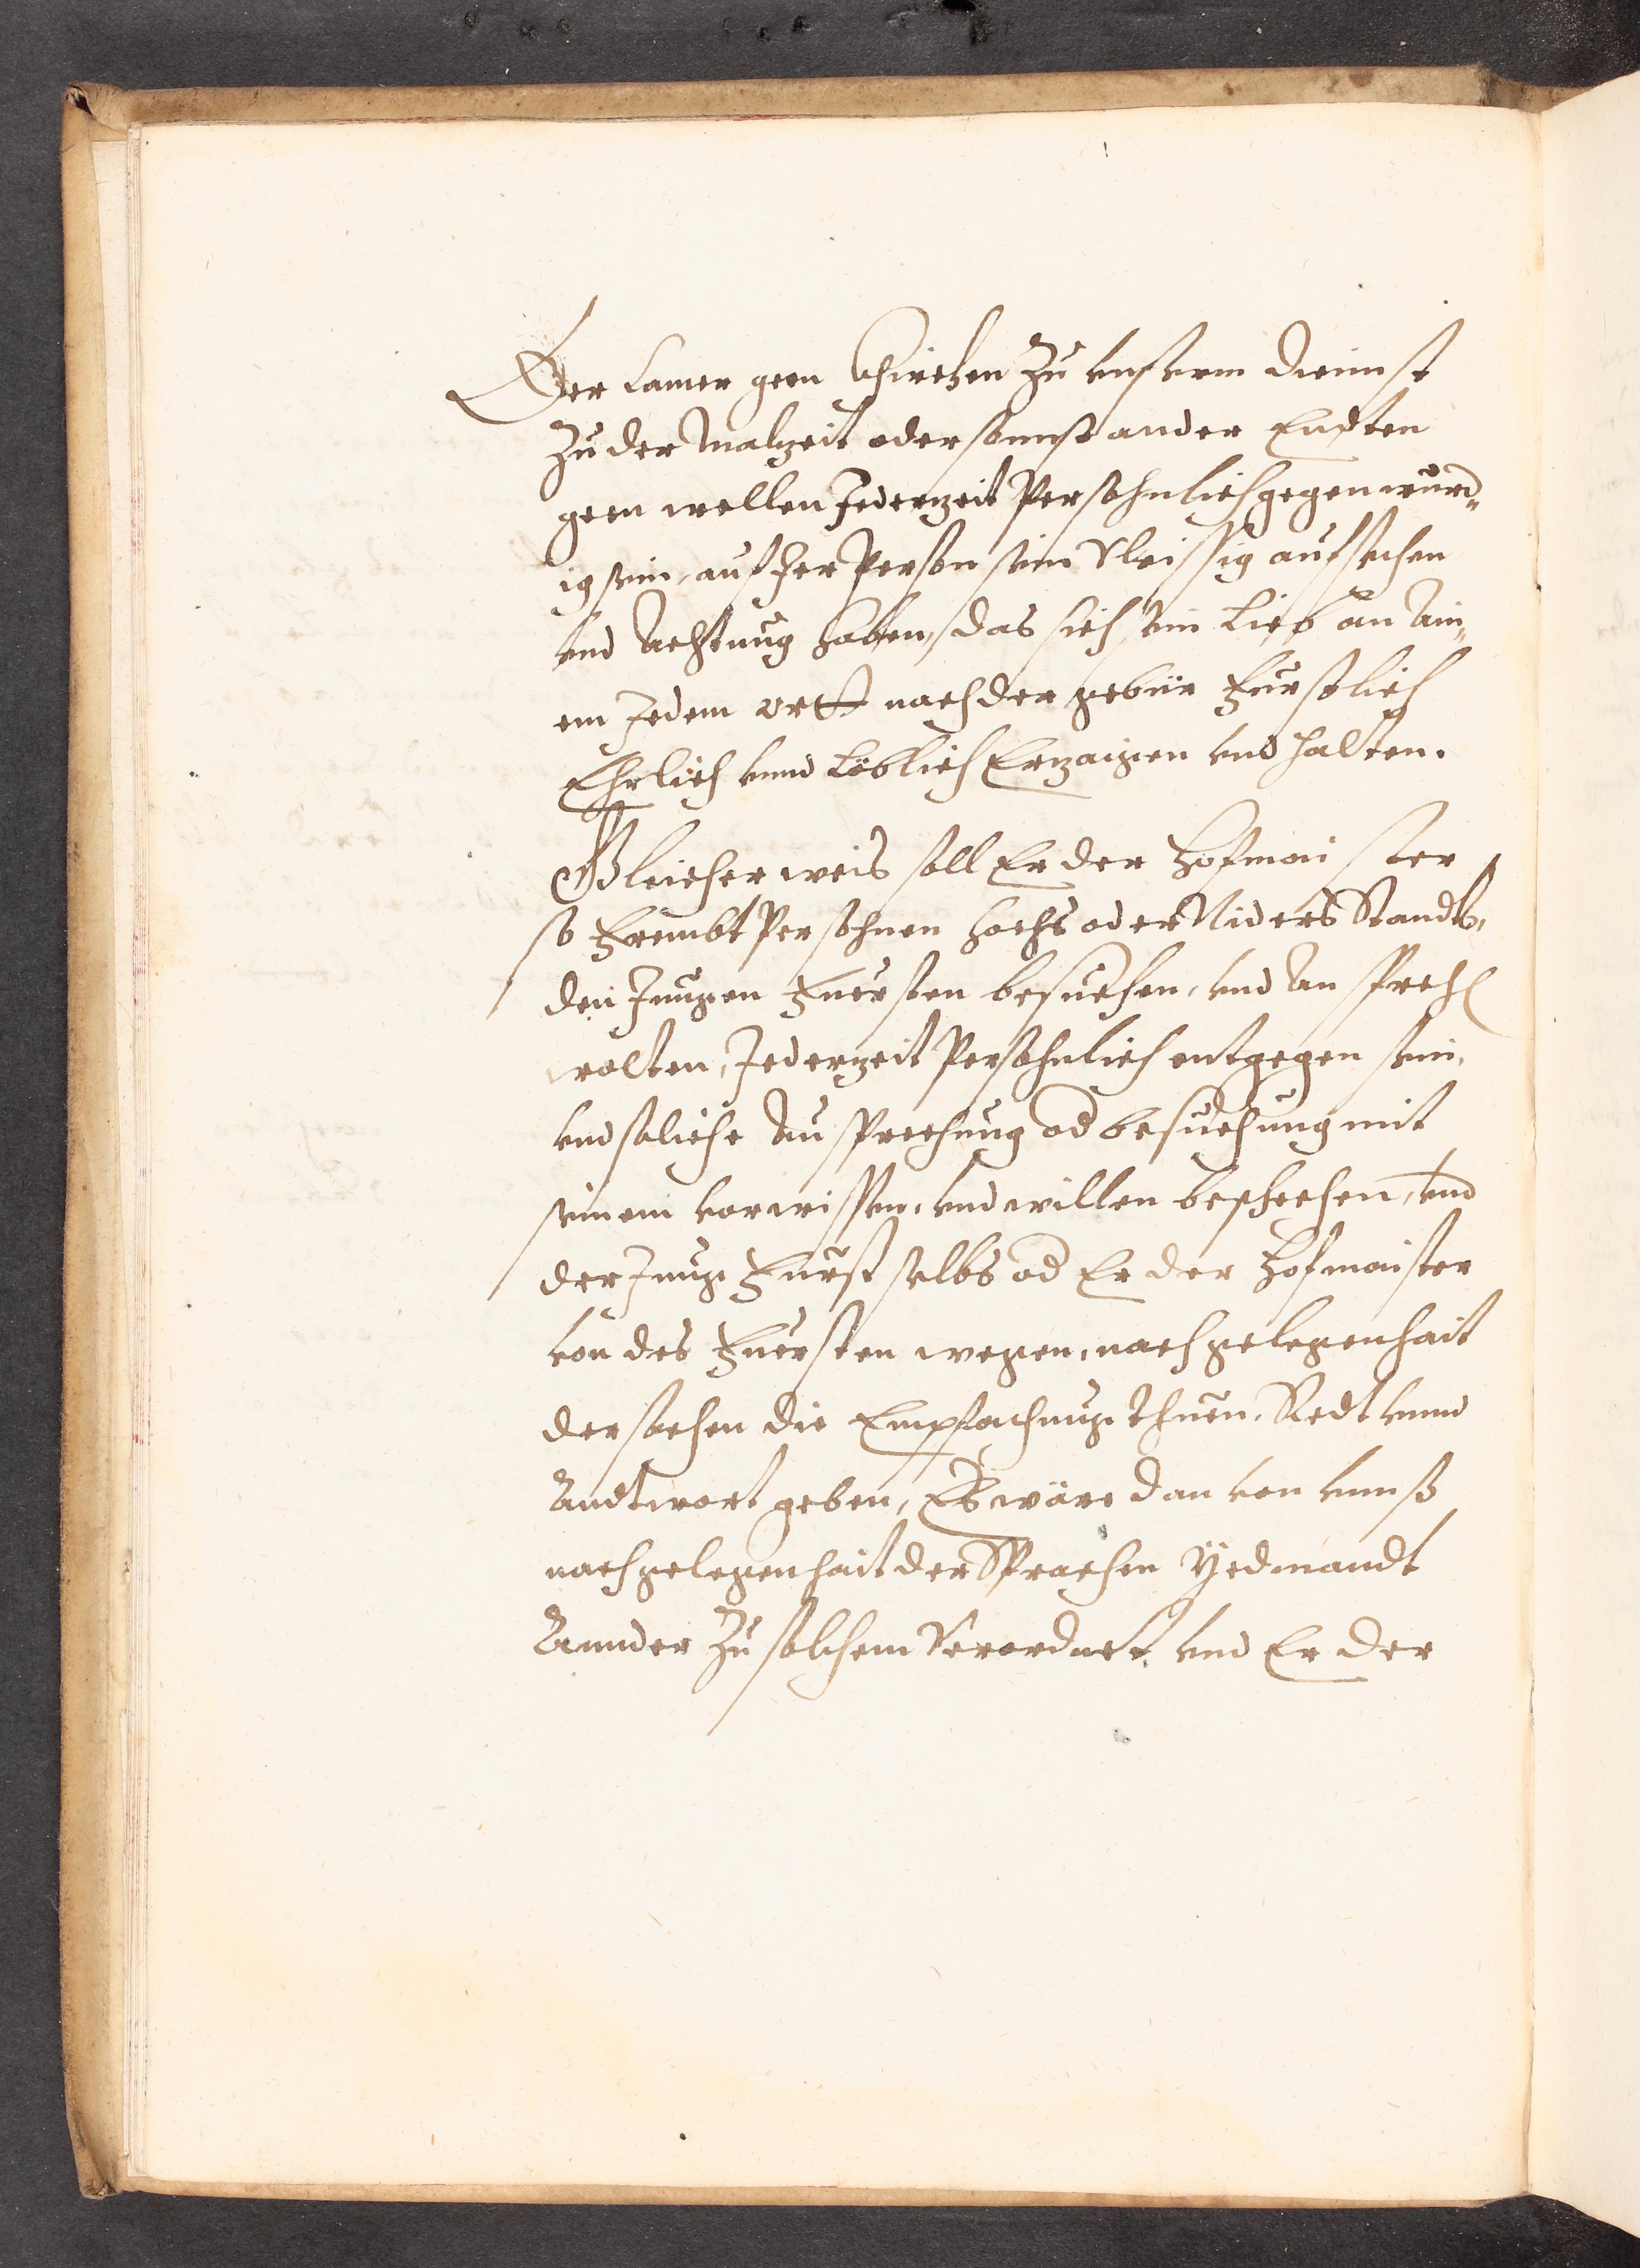 Der Camer geen Khirchen Zu vnserm dienst
Zu der Malzeit oder sonnst ander Endten
geen wellen Jederzeit Persohnlich gegenwürd„
ig sein, auf Jer Person sein Vleissig aufsechen
vnd Achtung haben, das sich sein Lieb an Ain„
em Jedem ortt nach der gebür Fürstlich
Ehrlich vnnd Löblich Erzaigen vnd halten.
Gleicher weis soll Er der Hofmaister
so Frembt Persohnen hochs oder Niders Standts,
den Jungen Fuersten besuechen, vnd An sprech
wolten, Jederzeit Persohnlich entgegen sein,
vnd soliche Ansprechung od besuechung mit
seinem vorwissen, vnd willen beschechen, vnd
der Jung Fürst selbs od Er der Hofmaister
von des Fuersten wegen, nach gelegenhait
der sachen die Empfachung thuen, Redt vnnd
Andtwort geben, Es wäre dan von vnnß
nach gelegenhait der Sprachen Yedmandt
Annder Zu solchem Verordnet vnd Er der